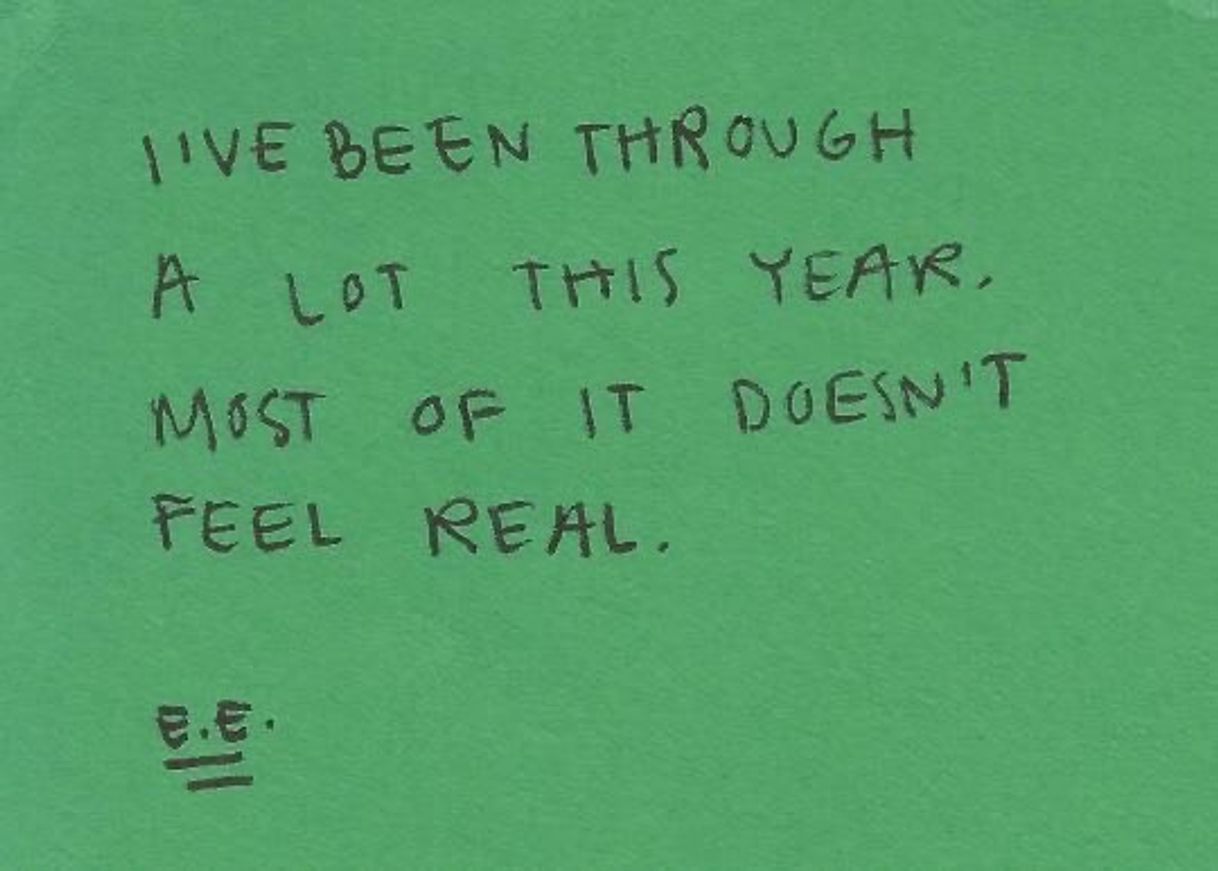 I'VE BEEN THROUGH
A LOT THIS YEAR.
MOST OF IT DOESN'T
FEEL REAL.
E.E.